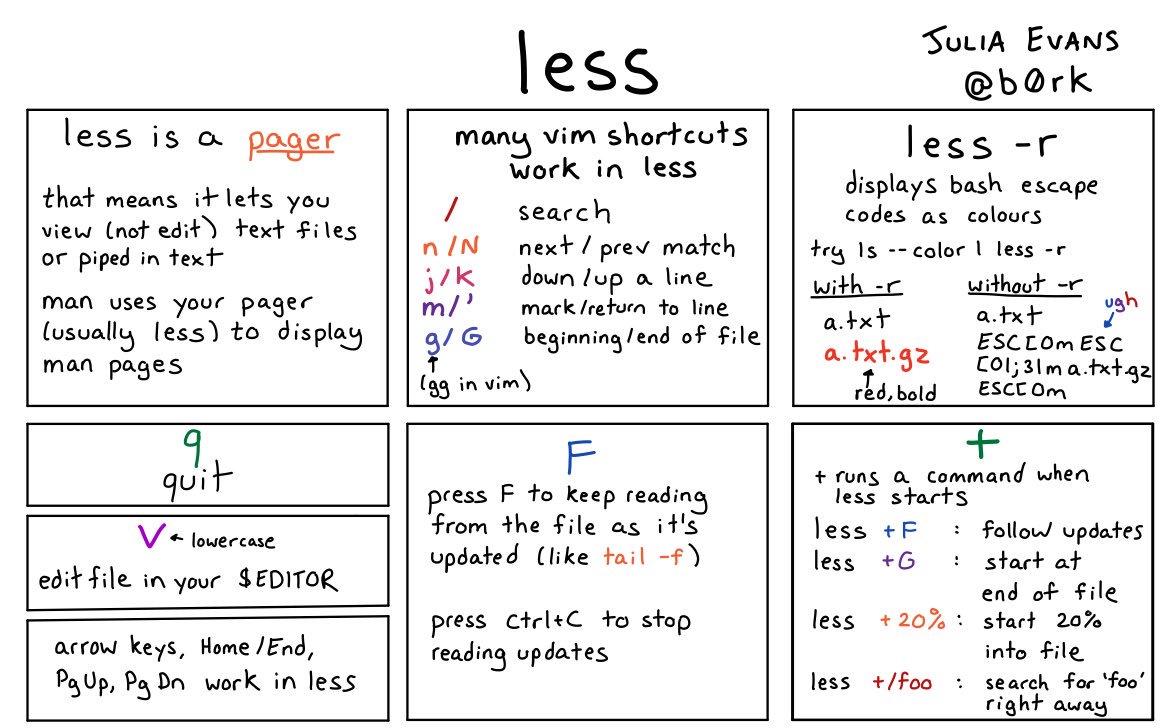 less
JULIA EVANS
@b0rk
less is a pager
that means it lets you
view (not edit) text files
or piped in text
man uses your pager
(usually less) to display
man pages
many vim shortcuts
work in less
/ search
n/N next/prev match
j/K down/up a line
m/' mark/return to line
g/G beginning/end of file
(gg in vim)
less -r
displays bash escape
codes as colours
try ls --color | less -r
with -r
a.txt
a.txt.gz
red, bold
without -r
ugh
a.txt
ESC[0m ESC
[01;31m a.txt.gz
ESC[0m
q
quit
v ← lowercase
edit file in your $EDITOR
arrow keys, Home/End,
PgUp, PgDn work in less
F
press F to keep reading
from the file as it's
updated (like tail -f)
press Ctrl+C to stop
reading updates
+
+ runs a command when
less starts
less +F : follow updates
less +G : start at
end of file
less +20% : start 20%
into file
less +/foo : search for 'foo'
right away